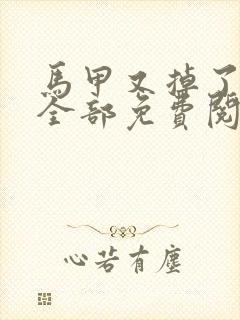 馬甲又掉了
全部免費閱
心若有塵